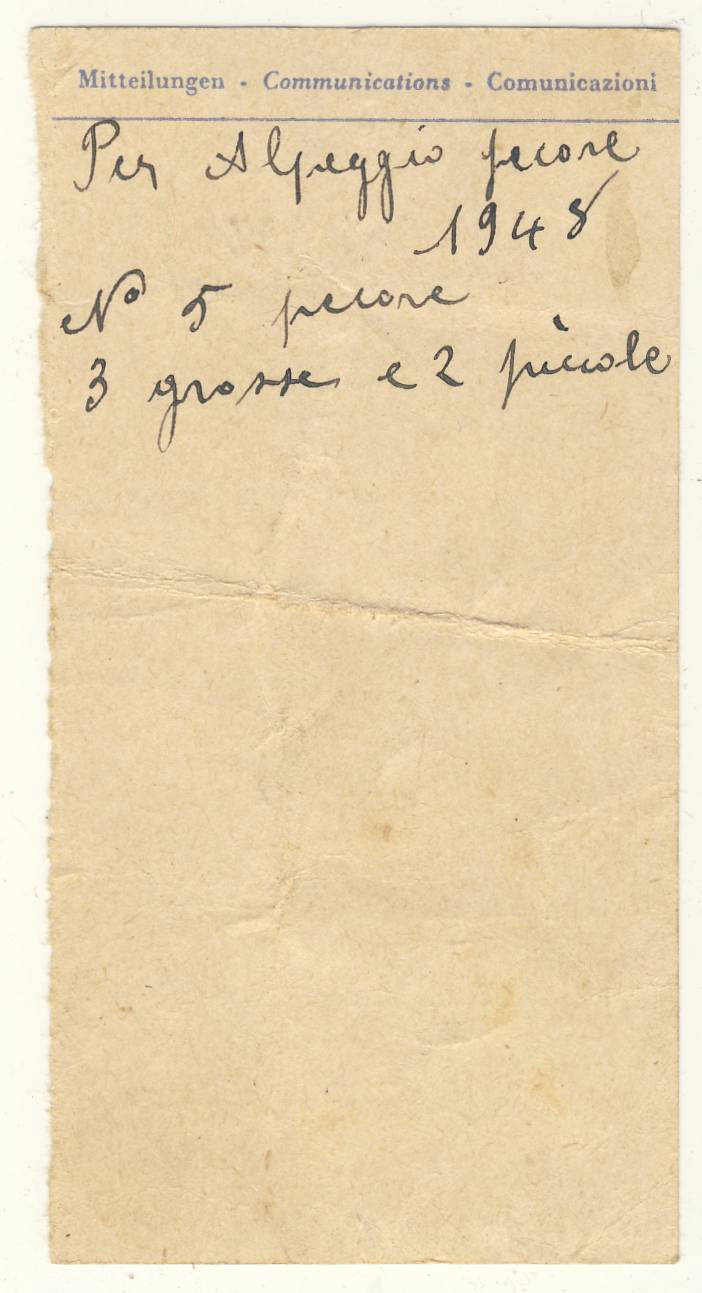 Mitteilungen - Communications - Comunicazioni
Per Alpeggio pecore
1948
No 5 pecore
3 grosse e 2 piccole